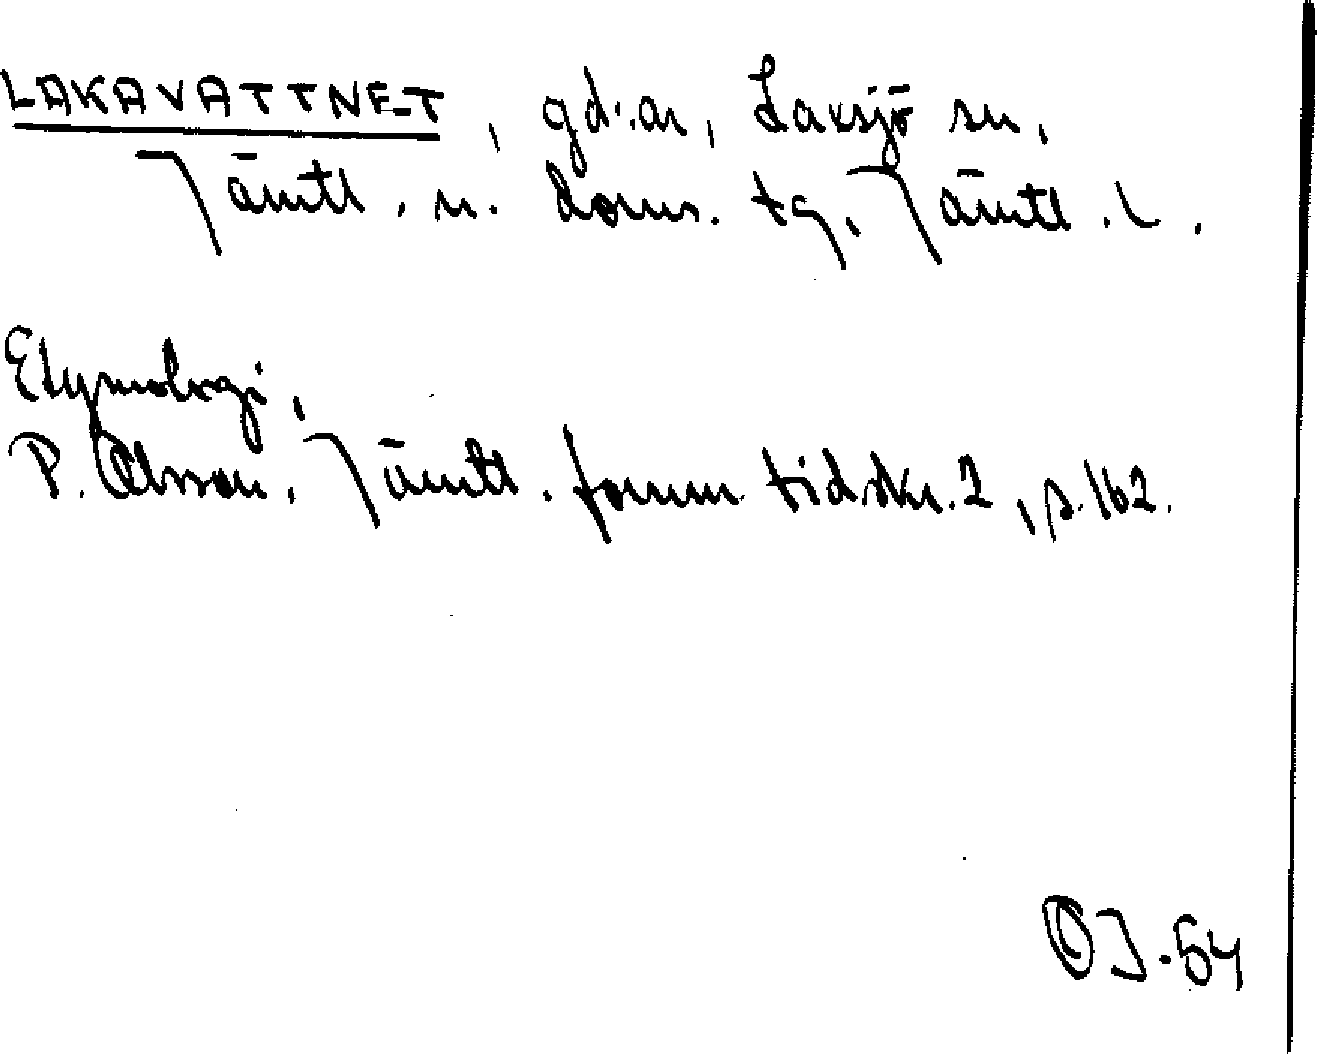 LAKAVATTNET, gd:ar, Laxsjö sn,
Jämtl. n. doms. tg, Jämtl. l.
Etymologi,
P. Olsson. Jämtl. fornm tidskr. 2, s. 162.
OJ. 64